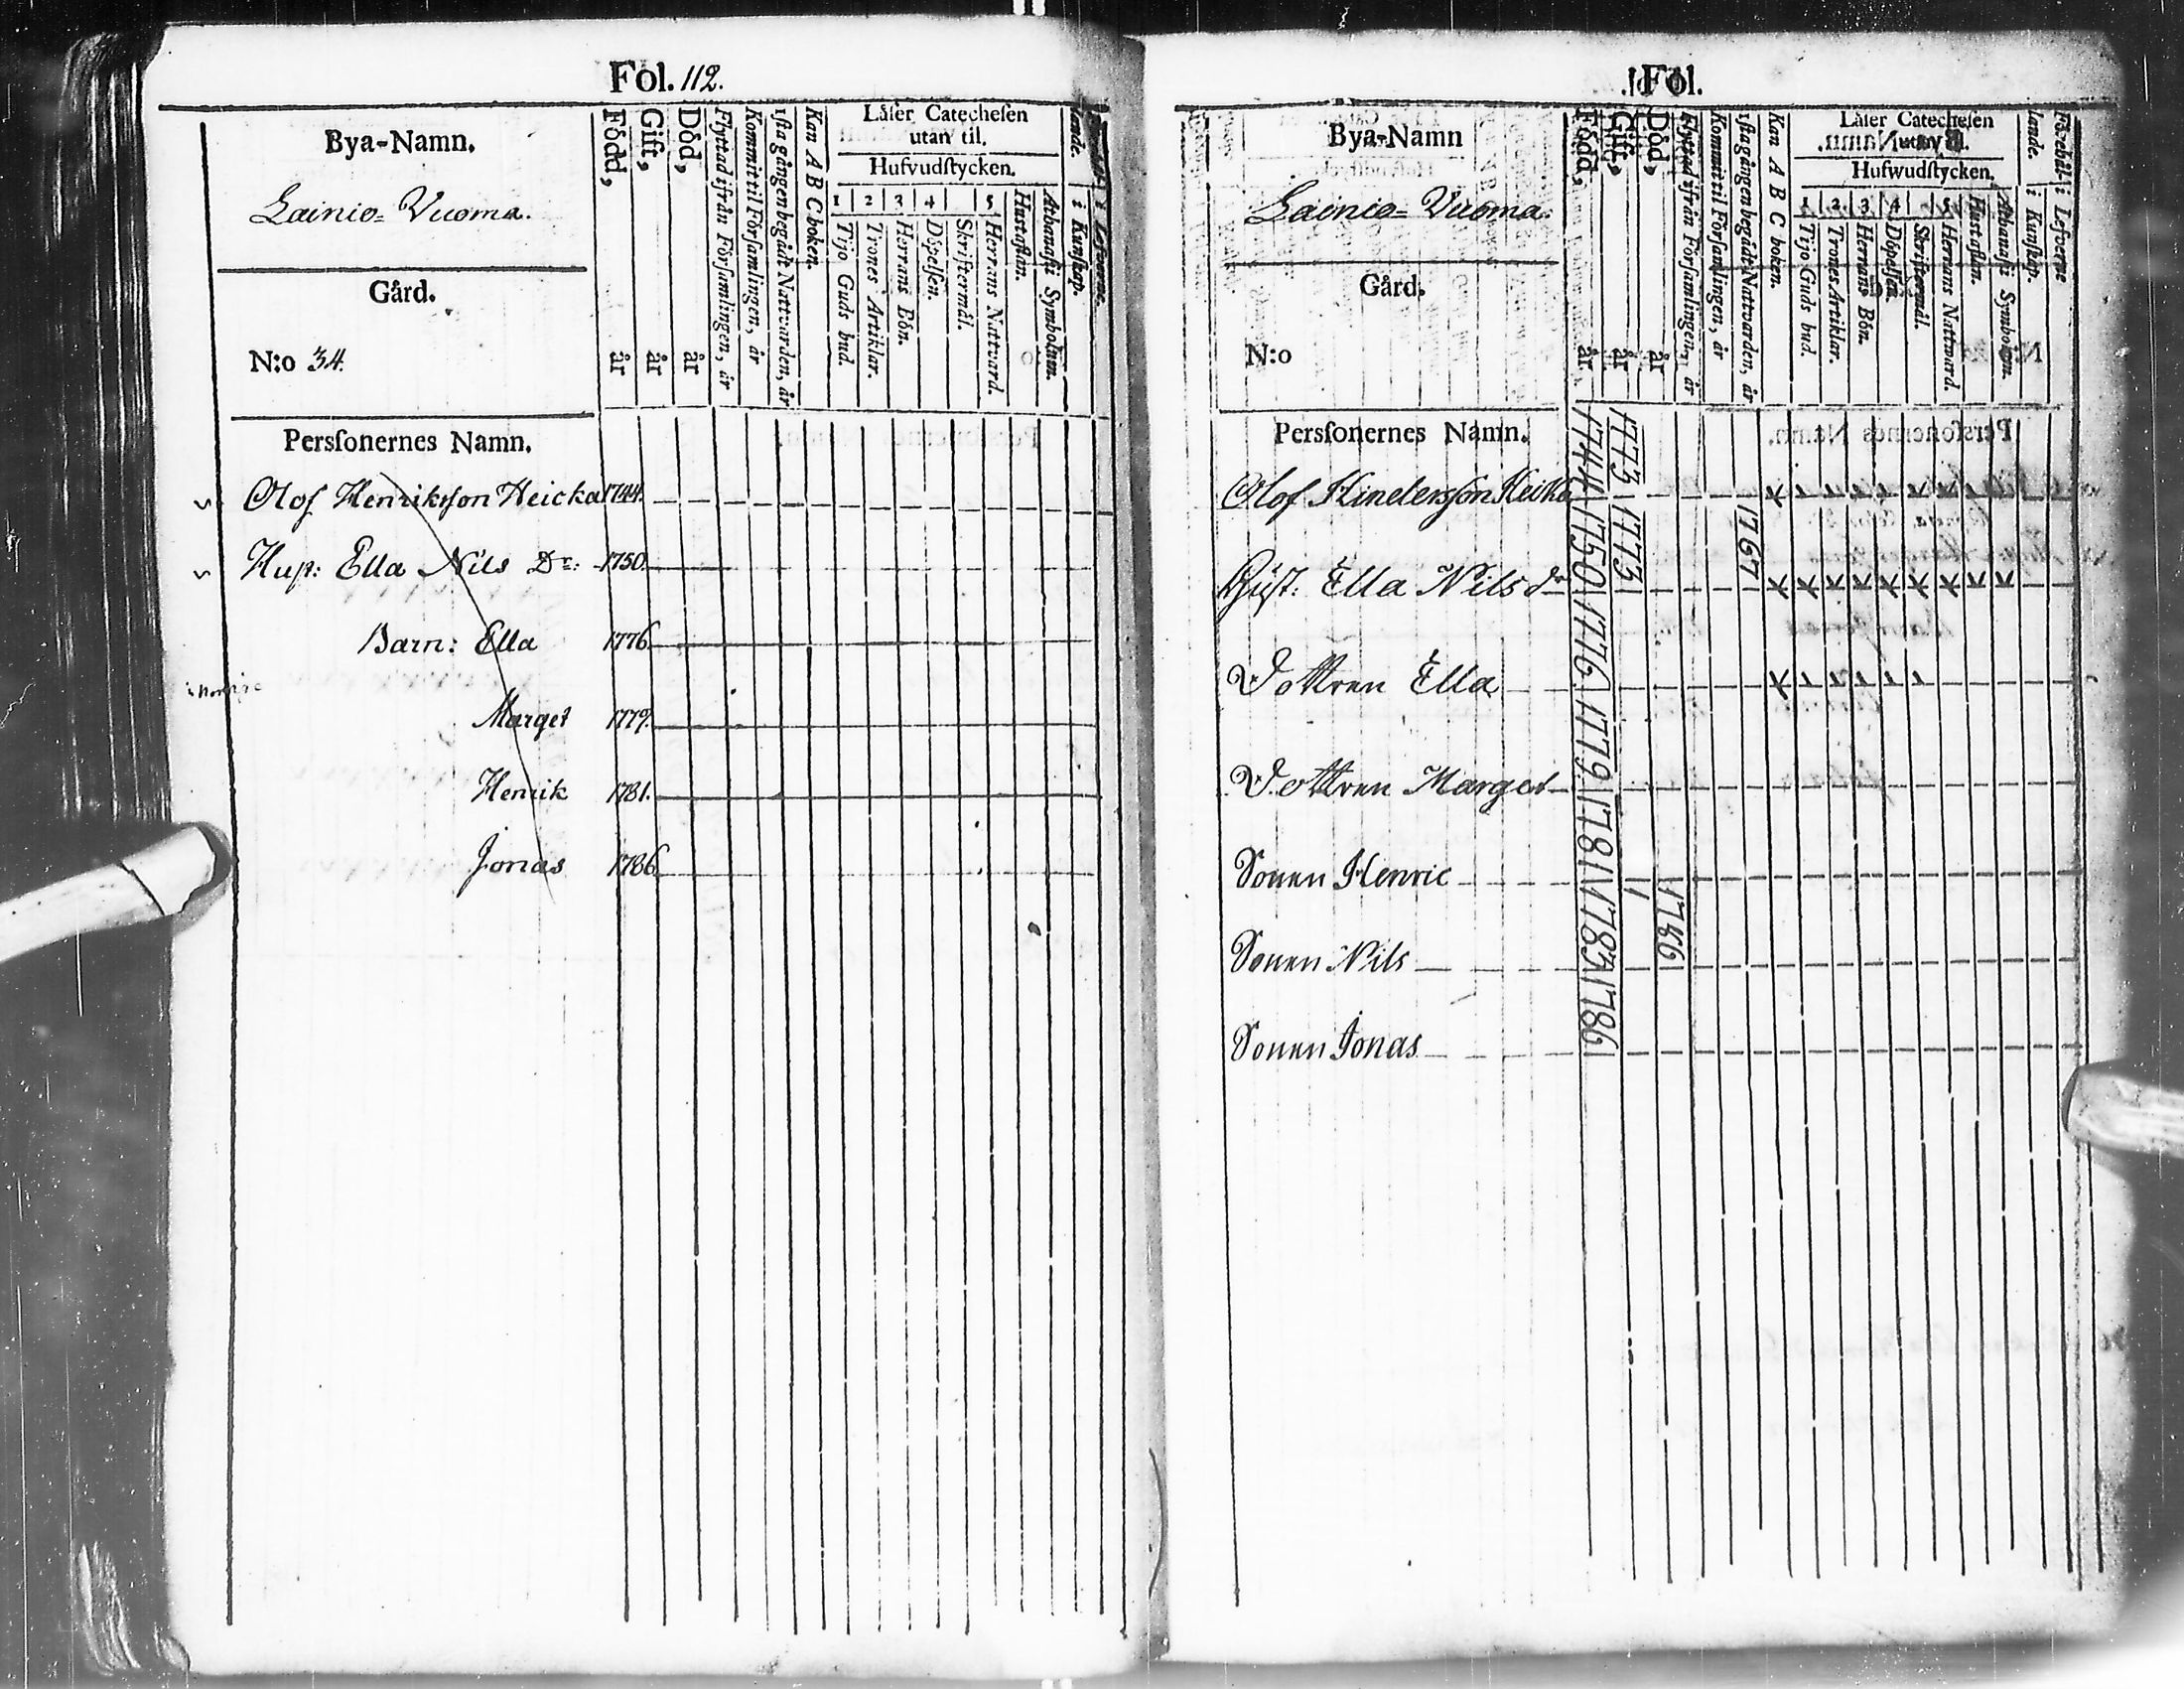 Fol. 112.
Bya-Namn.
Lainio= Vuoma.
Gård.
N:o 34.
Född, år
Gift, år
Död, år
Flyttad ifrån Församlingen, år
Kommit til Församlingen, år
1sta gången begådt Nattvarden, år
Kan A B C boken.
Låser Catechesen
utan til.
Hufvudstycken.
1 2 3 4 5
Tijo Guds bud.
Trones Artiklar.
Herrans Bön.
Döpelsen.
Skriftermål.
Herrans Nattvard.
Hustaflan.
Athanasii Symbolum.
lande.
i Kunskap.
i Lefverne.
Personernes Namn.
Olof Henriksson Heicka 1744.
Hust: Ella Nils Dr: 1750.
Barn: Ella 1776.
Marget 1779.
Henrik 1781.
Jonas 1786.
Fol.
Bya-Namn
Lainio= Vuoma.
Gård.
N:o
Född, år
Gift, år
Död, år
Flyttad ifrån Församlingen, år
Kommit til Församlingen, år
1sta gången begådt Nattvarden, år
Kan A B C boken.
Låser Catechesen
utan til.
Hufwudstycken.
1 2 3 4 5
Tijo Guds bud.
Trones Artiklar.
Herrans Bön.
Döpelsen.
Skriftermål.
Herrans Natward.
Hustaflan.
Athanasii Symbolum.
Förehål-
lande.
i Kunskap.
i Lefverne
Personernes Namn.
Olof Hindersson Heika 1744 1773
Hust: Ella Nils dr 1750 1773 1767
Dottren Ella 1776
Dottren Marget 1779
Sonen Henric 1781
Sonen Nils 1783 1786
Sonen Jonas 1786